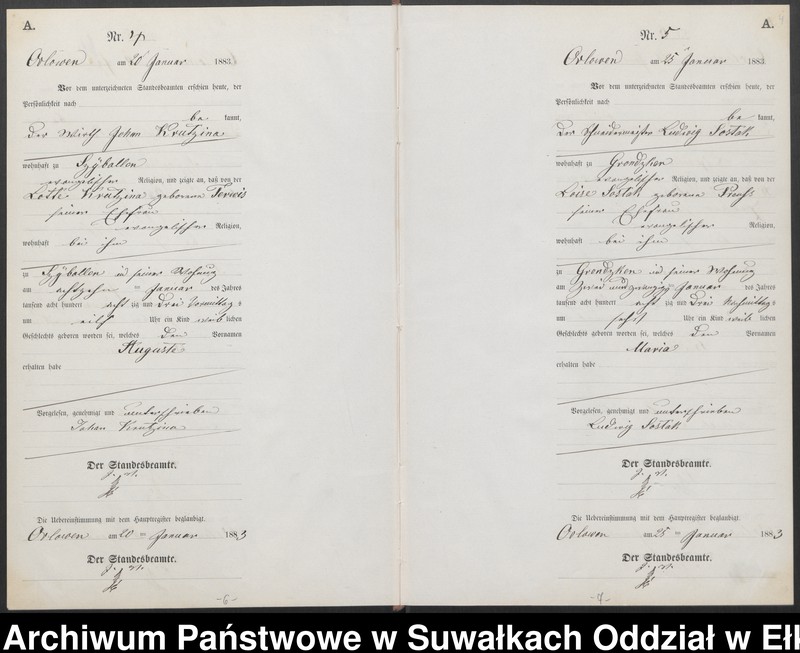 A.
Nr. 4
Orlowen am 20 Januar 1883
Vor dem unterzeichneten Standesbeamten erschien heute, der
Persönlichkeit nach
be kannt,
der Wirth Johan Krutzina
wohnhaft zu Szÿballen
evangelischer Religion, und zeigte an, daß von der
Lotte Krutzina geborene
seiner Ehefrau
evangelischer Religion,
wohnhaft bei ihm
zu Szÿballen in seiner Wohnung
am achtzehn ten Januar des Jahres
tausend acht hundert acht zig und drei Vormittag s
um eilf Uhr ein Kind weib lichen
Geschlechts geboren worden sei, welches den Vornamen
Auguste
erhalten habe
Vorgelesen, genehmigt und unterschrieben
Johan Krutzina
Der Standesbeamte.
Die Uebereinstimmung mit dem Hauptregister beglaubigt.
Orlowen am 20 ten Januar 1883
Der Standesbeamte.
-6-
A.
Nr. 5
Orlowen am 25 Januar 1883
Vor dem unterzeichneten Standesbeamten erschien heute, der
Persönlichkeit nach
be kannt,
der Schneidermeister Ludwig Sostak
wohnhaft zu Grondzken
evangelischer Religion, und zeigte an, daß von der
Loise Sostak geborene
seiner Ehefrau
evangelischer Religion,
wohnhaft bei ihm
zu Grondzken in seiner Wohnung
am zwei und zwanzig ten Januar des Jahres
tausend acht hundert acht zig und drei Nachmittag s
um sechs Uhr ein Kind weib lichen
Geschlechts geboren worden sei, welches den Vornamen
Maria
erhalten habe
Vorgelesen, genehmigt und unterschrieben
Ludwig Sostak
Der Standesbeamte.
Die Uebereinstimmung mit dem Hauptregister beglaubigt.
Orlowen am 25 ten Januar 1883
Der Standesbeamte.
-7-
Archiwum Państwowe w Suwałkach Oddział w Ełk